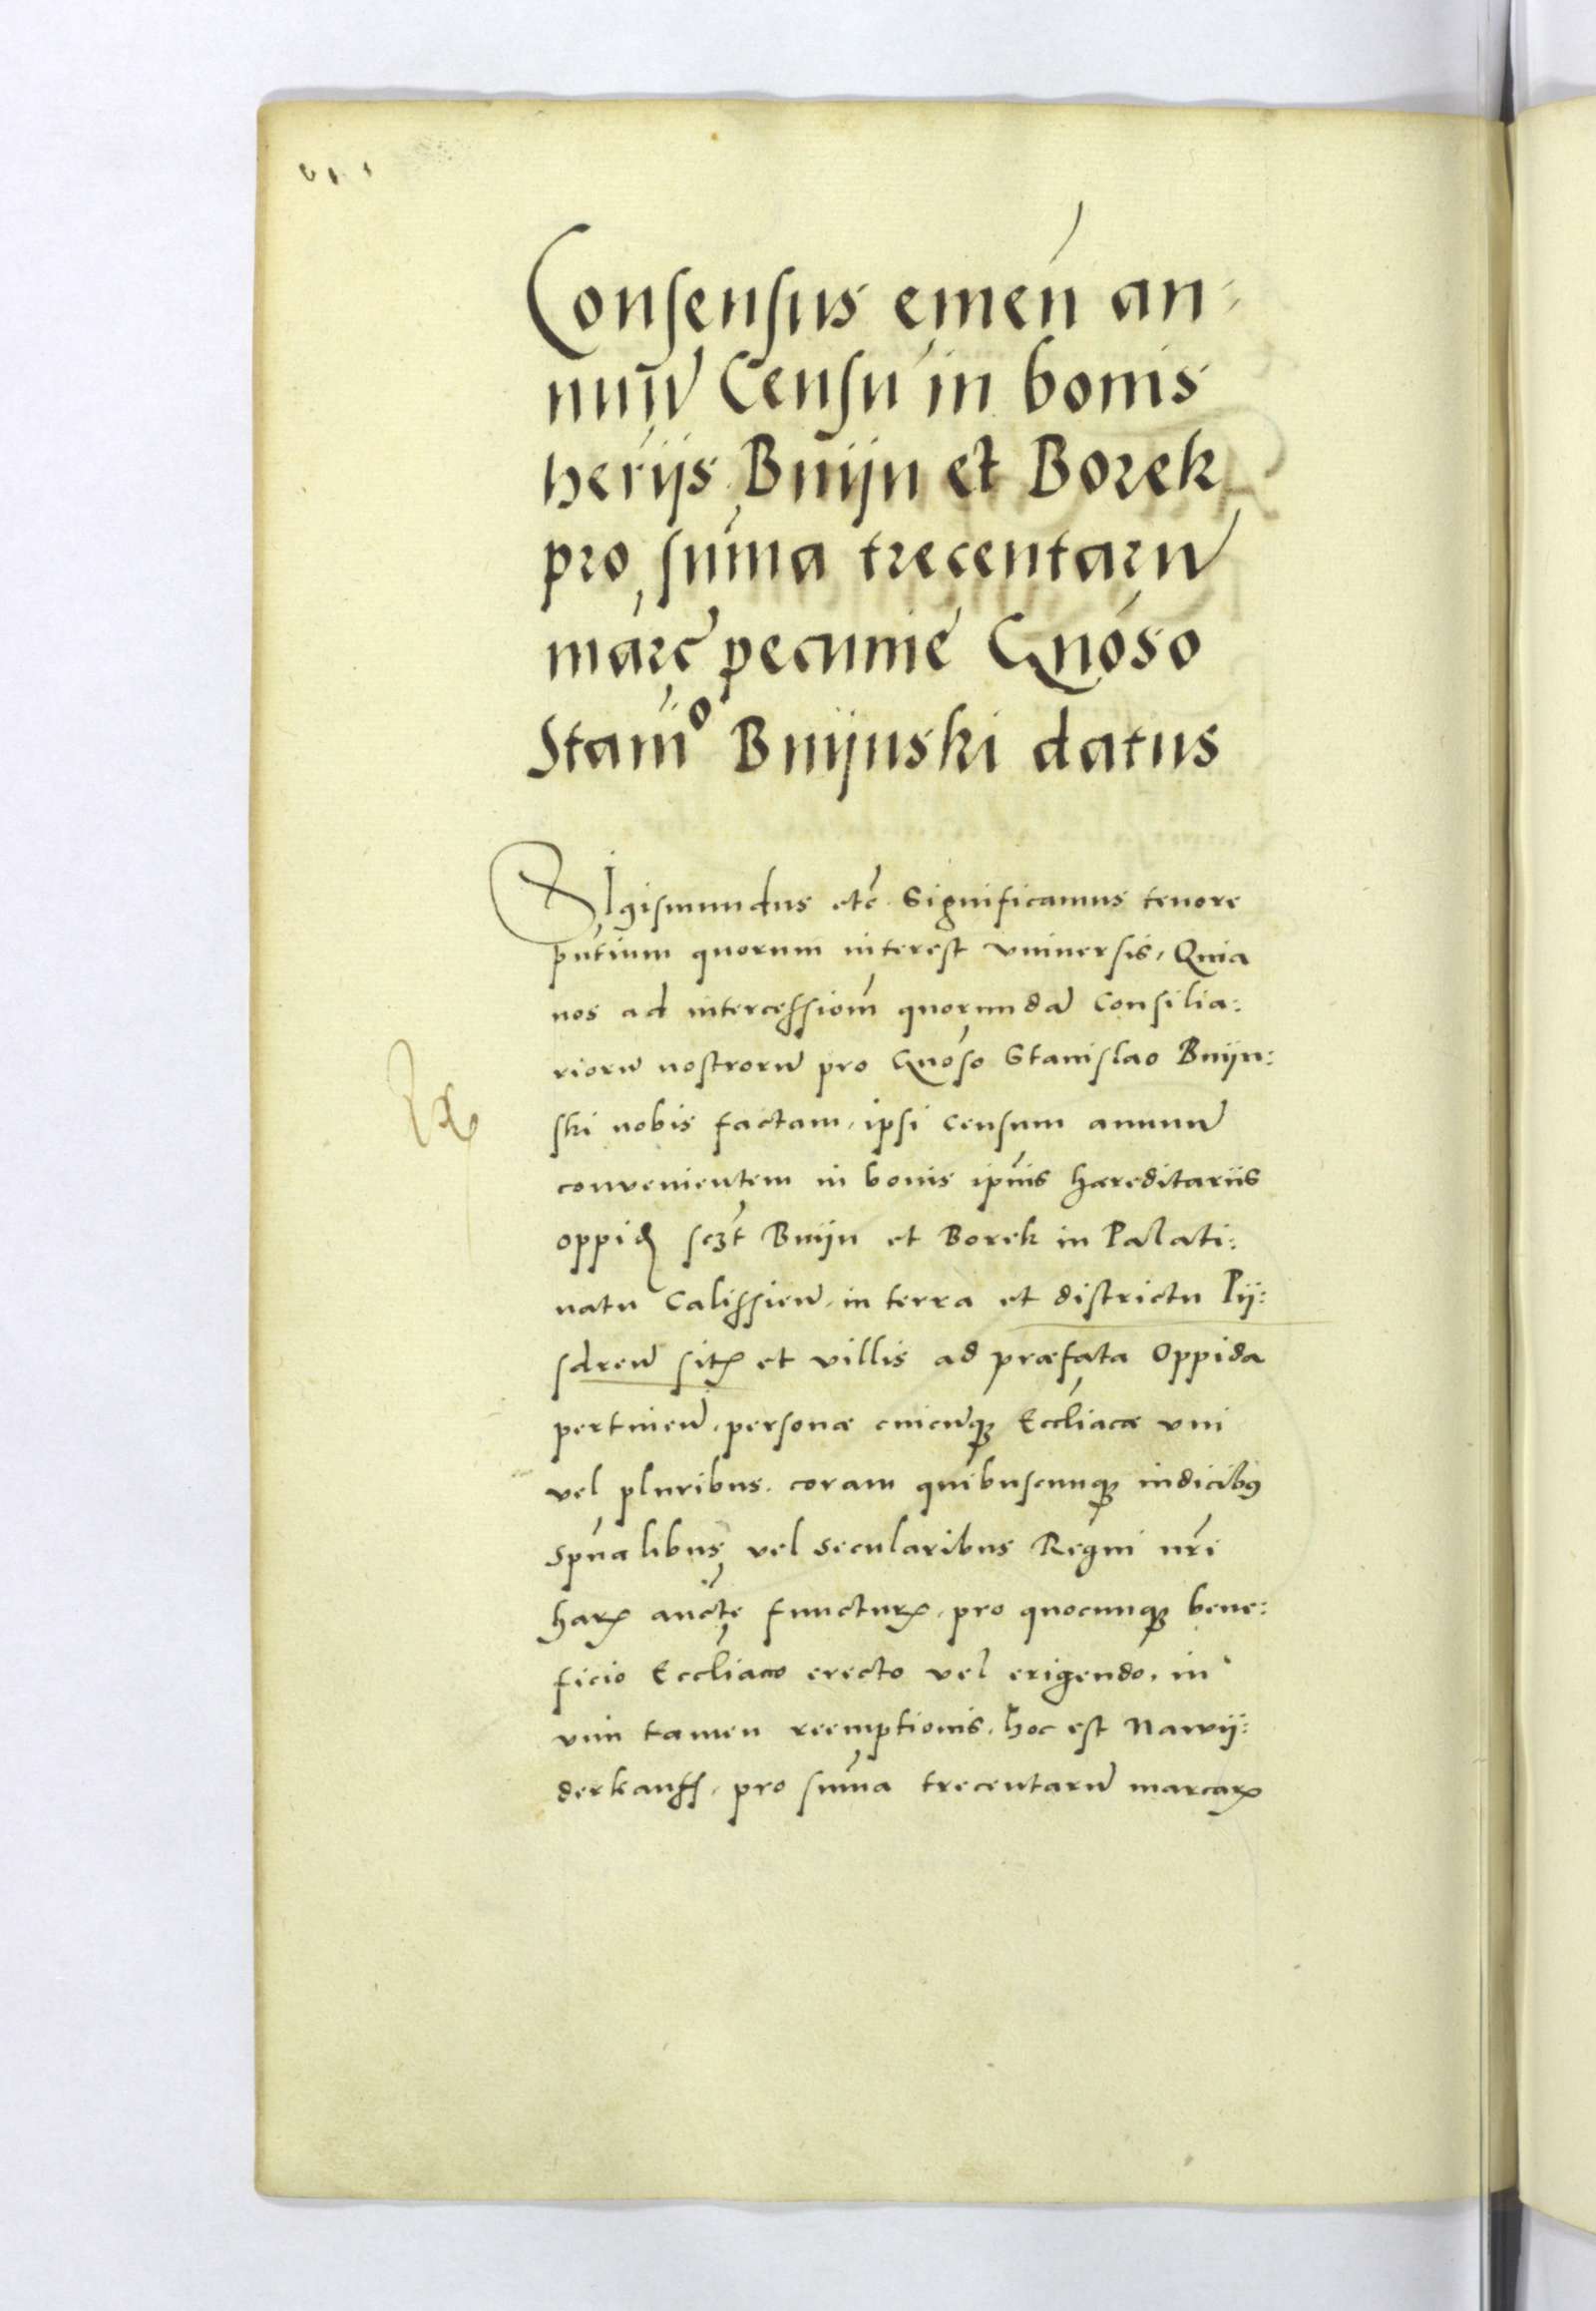 Consensus emeń an-
nuū Censū in bonis
herijs Bnijn et Borek
pro sūma trecentarū
marć pecunie Gnōso
Stanio Bnijnski datus
Sigismundus etć Significamus tenore
pūtium quorum interest vniuersis, Quia
nos ad intercessiom̄ quorundā Consilia:
riorū nostrorū pro Gnōso Stanislao Bnijn:
ski nobis factam, ipsi censum annuū
convenientem in bonis ipīus hæreditariis
oppid scȝt Bnijn et Borek in Palati:
natu Calissień, in terra et districtu Pij:
sdreń sitꝭ et villis ad præfata Oppida
pertineń, personæ cuicūqꝫ Eccliacæ vni
vel pluribus, coram quibuscunqꝫ iudicibꝰ
Spūalibus vel secularibus Regni nrī
harꝝ aucte functurꝝ, pro quocunqꝫ bene:
ficio Eccliaco erecto vel erigendo, in
vim tamen reemptionis, hoc est Nawij:
derkauff, pro sūma trecentarū marcarꝝ